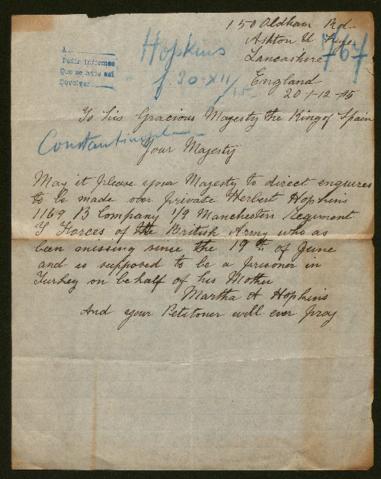 150 Oldham Rd
Ashton U Lyne
Lancashire
England
20-12-15
767
Hopkins
f. 20-XII/15
A
Pedir informes
Que se hable así
Devolver
To His Gracious Majesty the King of Spain
Constantinopla
Your Majesty
May it please your Majesty to direct enquires
to be made over Private Herbert Hopkins
1169 B Company 1/9 Manchesters Regiment
T Forces of the British Army who as
been missing since the 19th of June
and is supposed to be a prisoner in
Turkey on behalf of his Mother
Martha A Hopkins
And your Petitoner will ever pray